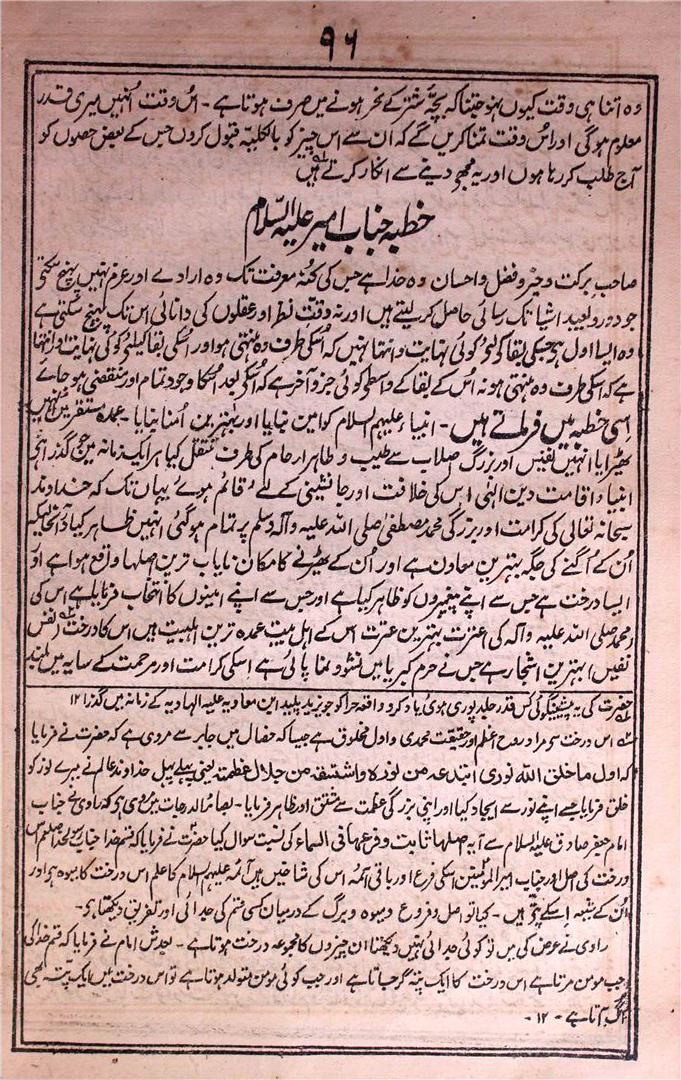 ۹۶
وہ اتنا ہی وقت کیوں نہو جتنا کہ بچۂ شتر کے نحر ہونے میں صرف ہوتا ہے۔ اُس وقت اُنہیں میری قدر
معلوم ہوگی اور اُس وقت تمنا کریں گے کہ ان سے اس چیز کو بالکلیہ قبول کروں جس کے بعض حصوں کو
آج طلب کر رہا ہوں اور یہ مجھے دینے سے انکار کرتے ہیں
خطبہ جناب امیر علیہ السّلام
صاحب برکت و خیر و فضل و احسان وہ خدا ہے جس کی کُنہ معرفت تک وہ ارادے اور عزم نہیں پہنچ سکتی
جو دور و بعید اشیا تک رسائی حاصل کر لیتے ہیں اور نہ دقت نظر اور عقلوں کی دانائی اس تک پہنچ سکتی ہے
وہ ایسا اول ہے جسکی بقا کو لئے کوئی نہایت و انتہا نہیں کہ اُسکی طرف وہ منتہی ہو اور اُسکی بقا کیلئے کوئی نہایت و انتہا
ہے کہ اسکی طرف وہ منتہی ہو نہ اُس کے بقا کے واسطی کوئی جزو آخر ہے کہ اُسکی بعد اُسکا وجود تمام اور منقضی ہو جائے
اِسی خطبہ میں فرماتے ہیں۔ انبیاء علیہم السلام کو امین بنایا اور بہترین اُمنا بنایا۔ عمدہ مستقر میں اُنہیں
ٹھہرایا اُنہیں نفیس اور بزرگ اصلاب سے طیب و طاہر ارحام کی طرف منتقل کیا ہر ایک زمانہ میں جو گذر اہی
انبیا و اقامت دین الٰہی اس کی خلافت اور جانشینی کے لئے قائم ہوے یہاں تک کہ خداوند
سبحانہ تعالی کی کرامت اور بزرگی محمد مصطفیٰ صلی اللہ علیہ و آلہ وسلم پر تمام ہو گئی اُنہیں ظاہر کیا در آنحالیکہ
اُن کے اُگنے کی جگہ بہترین معادن ہے اور اُن کے ٹھہرنے کا مکان نایاب ترین اصلہا واقع ہوا ہے اور
ایسا درخت ہے جس سے اپنے پیغمبروں کو ظاہر کیا ہے اور جس سے اپنے امینوں کا انتخاب فرمایا ہے اس کی
(محمد صلی اللہ علیہ و آلہ کی) عترت بہترین عترت اس کے اہل بیت عمدہ ترین اہلبیت ہیں اس کا درخت (نفس
نفیس) بہترین اشجار ہے جس نے حرم کبریا میں نشو و نما پائی ہے اسکی کرامت اور مرحمت کے سایہ میں بلند
حضرت کی یہ پیشینگوئی کس قدر جلد پوری ہوئی یاد کرو واقعہ حرا کو جو یزید پلید ابن معاویہ علیہ الہاویہ کے زمانہ میں گذرا ۱۲
اس درخت سی مراد روح اعظم اور حقیقت محمدی و اول مخلوق ہے جیسا کہ خصال میں جابر سے مروی ہے کہ حضرت نے فرمایا
کہ اول ما خلق اللہ نوری ابتدعہ من نورہ و اشتقہ من جلال عظمتہ یعنی پہلے پہل خداوند عالم نے میرے نور کو
خلق فرمایا جسے اپنے نور سے ایجاد کیا اور اپنی بزرگی عظمت سے مشتق اور ظاہر فرمایا۔ بصائر الدرجات میں مروی ہو کہ راوی نے جناب
امام جعفر صادق علیہ السلام سے آیہ اصلہا ثابت و فرعہا فی السماء کی نسبت سوال کیا حضرت نے فرمایا کہ قسم خدا جناب رسولخدا صلعم اس
درخت کی اصل اور جناب امیر المؤمنین اسکی فرع اور باقی ائمہ اس کی شاخیں ہیں آئمہ علیہم السلام کا علم اس درخت کا میوہ ہی اور
اُن کے شیعہ اِسکے پتے ہیں۔ کیا تو اصل و فروع و میوہ و برگ کے درمیان کسی قسم کی جدائی اور تفریق دیکھتا ہی۔
راوی نے عرض کی میں تو کوئی جدائی نہیں دیکھتا ان چیزوں کا مجموعہ درخت ہوتا ہے۔ بعدش امام نے فرمایا کہ قسم خدا کی
جب مومن مرتا ہے اس درخت کا ایک پتہ گر جاتا ہے اور جب کوئی مومن متولد ہوتا ہے تو اس درخت میں ایک پتہ بھی
اُگ آتا ہے۔ ۱۲۔